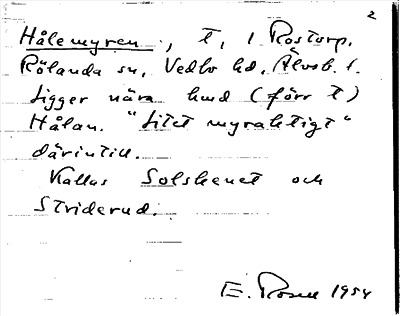 2
Hålemyren, t, i Rostorp.
Rölanda sn, Vedbo hd, Älvsb. l.
Ligger nära hmd (förr t)
Hålan. "Litet myraktigt"
därintill.
Kallas Solskenet och
Striderud.
E. Rosell 1954